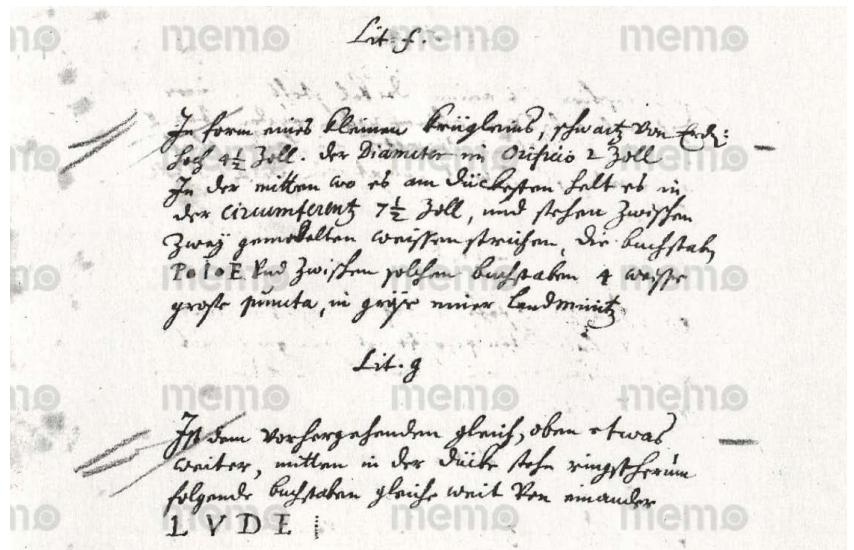 Lit. f.
In form eines kleinen Krügleins, schwartz von Erdt:
hoch 4½ Zoll. der Diameter im Orificio 2 Zoll
In der mitten wo es am dückesten helt es in
der Circumferentz 7½ Zoll, und stehen Zwischen
Zweÿ gemahlten weissen strichen, die buchstabn
P o I o E Vnd Zwischen solchen buchstaben 4 weisse
grosse puncta, in größe einer Landmüntz
Lit. g
Ist dem vorhergehenden gleich, oben etwas
weiter, mitten in der dücke stehn ringsherum
folgende buchstaben gleiche weit von einander
L V D E